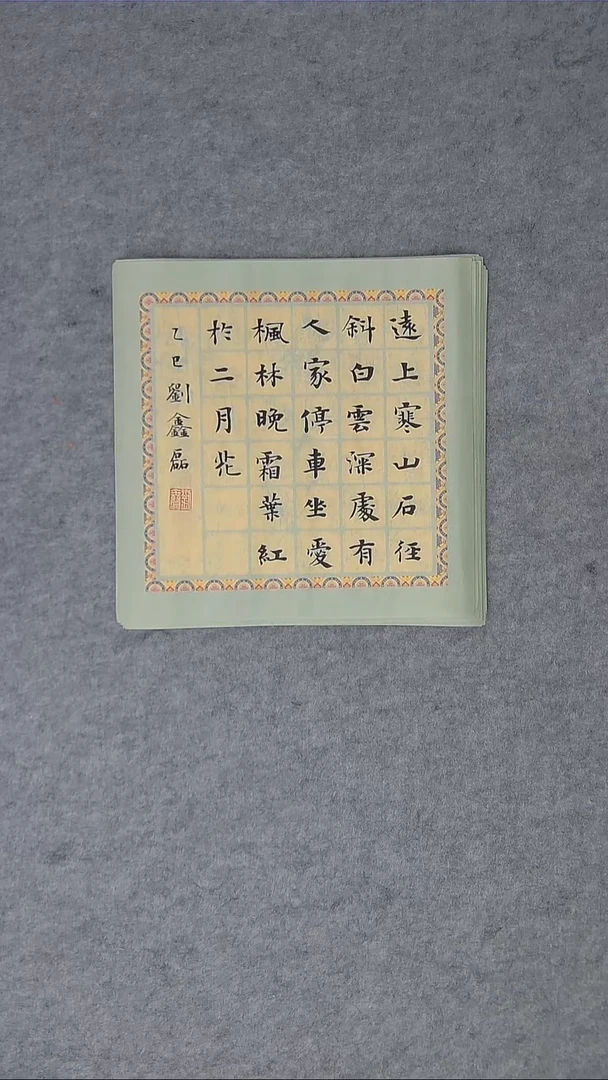 遠上寒山石徑
斜白雲深處有
人家停車坐愛
楓林晚霜葉紅
於二月花
乙巳劉鑫磊